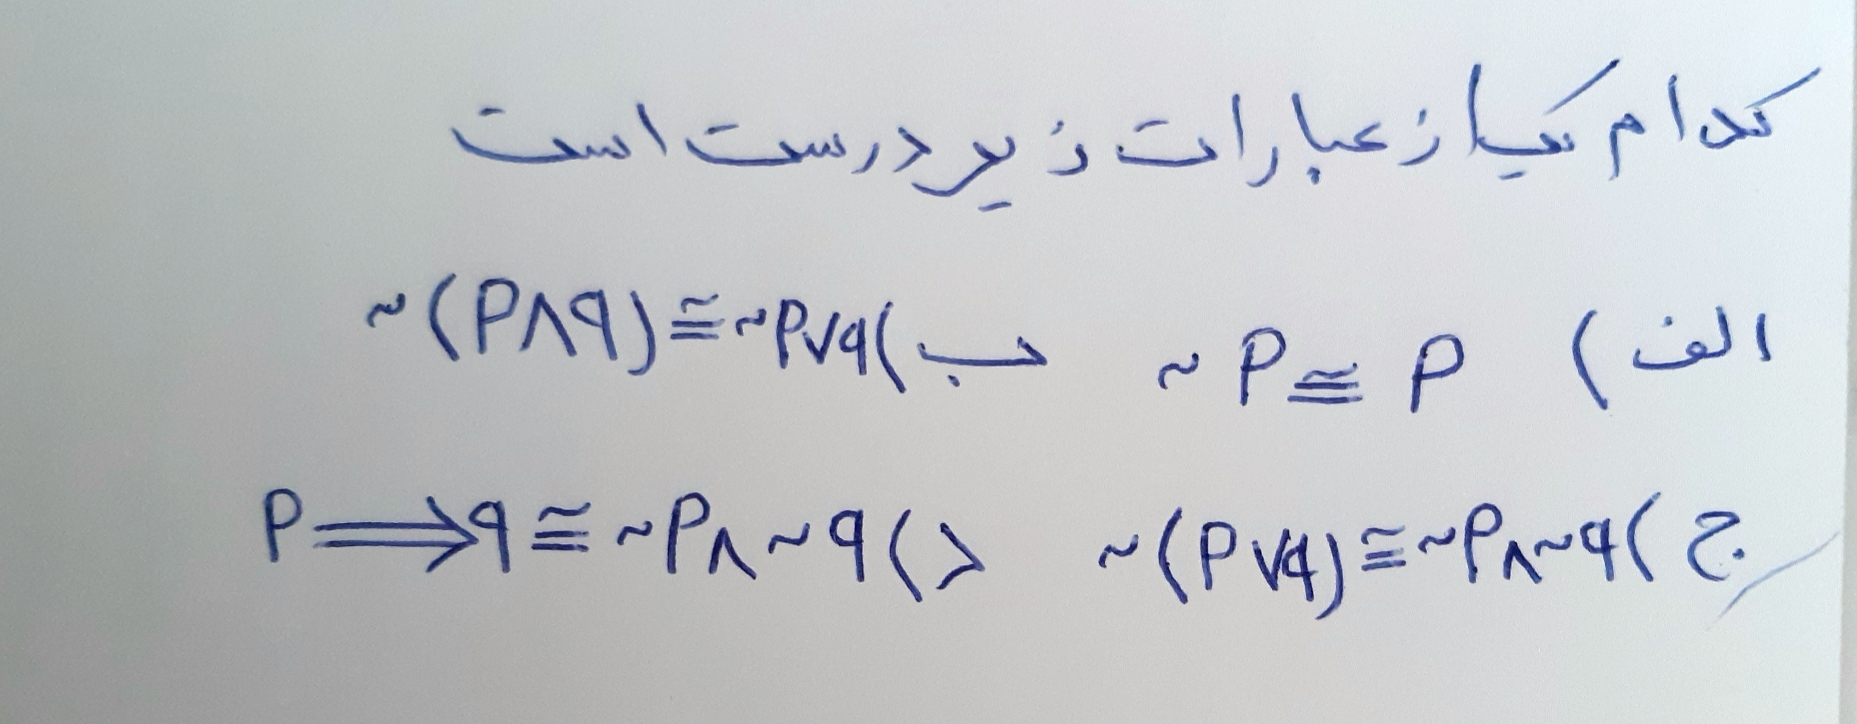 کدام یک از عبارات زیر درست است
الف) ~P≅P ب) ~(P∧q)≅~P∨q
ج) ~(P∨q)≅~P∧~q د) P⟹q≅~P∧~q